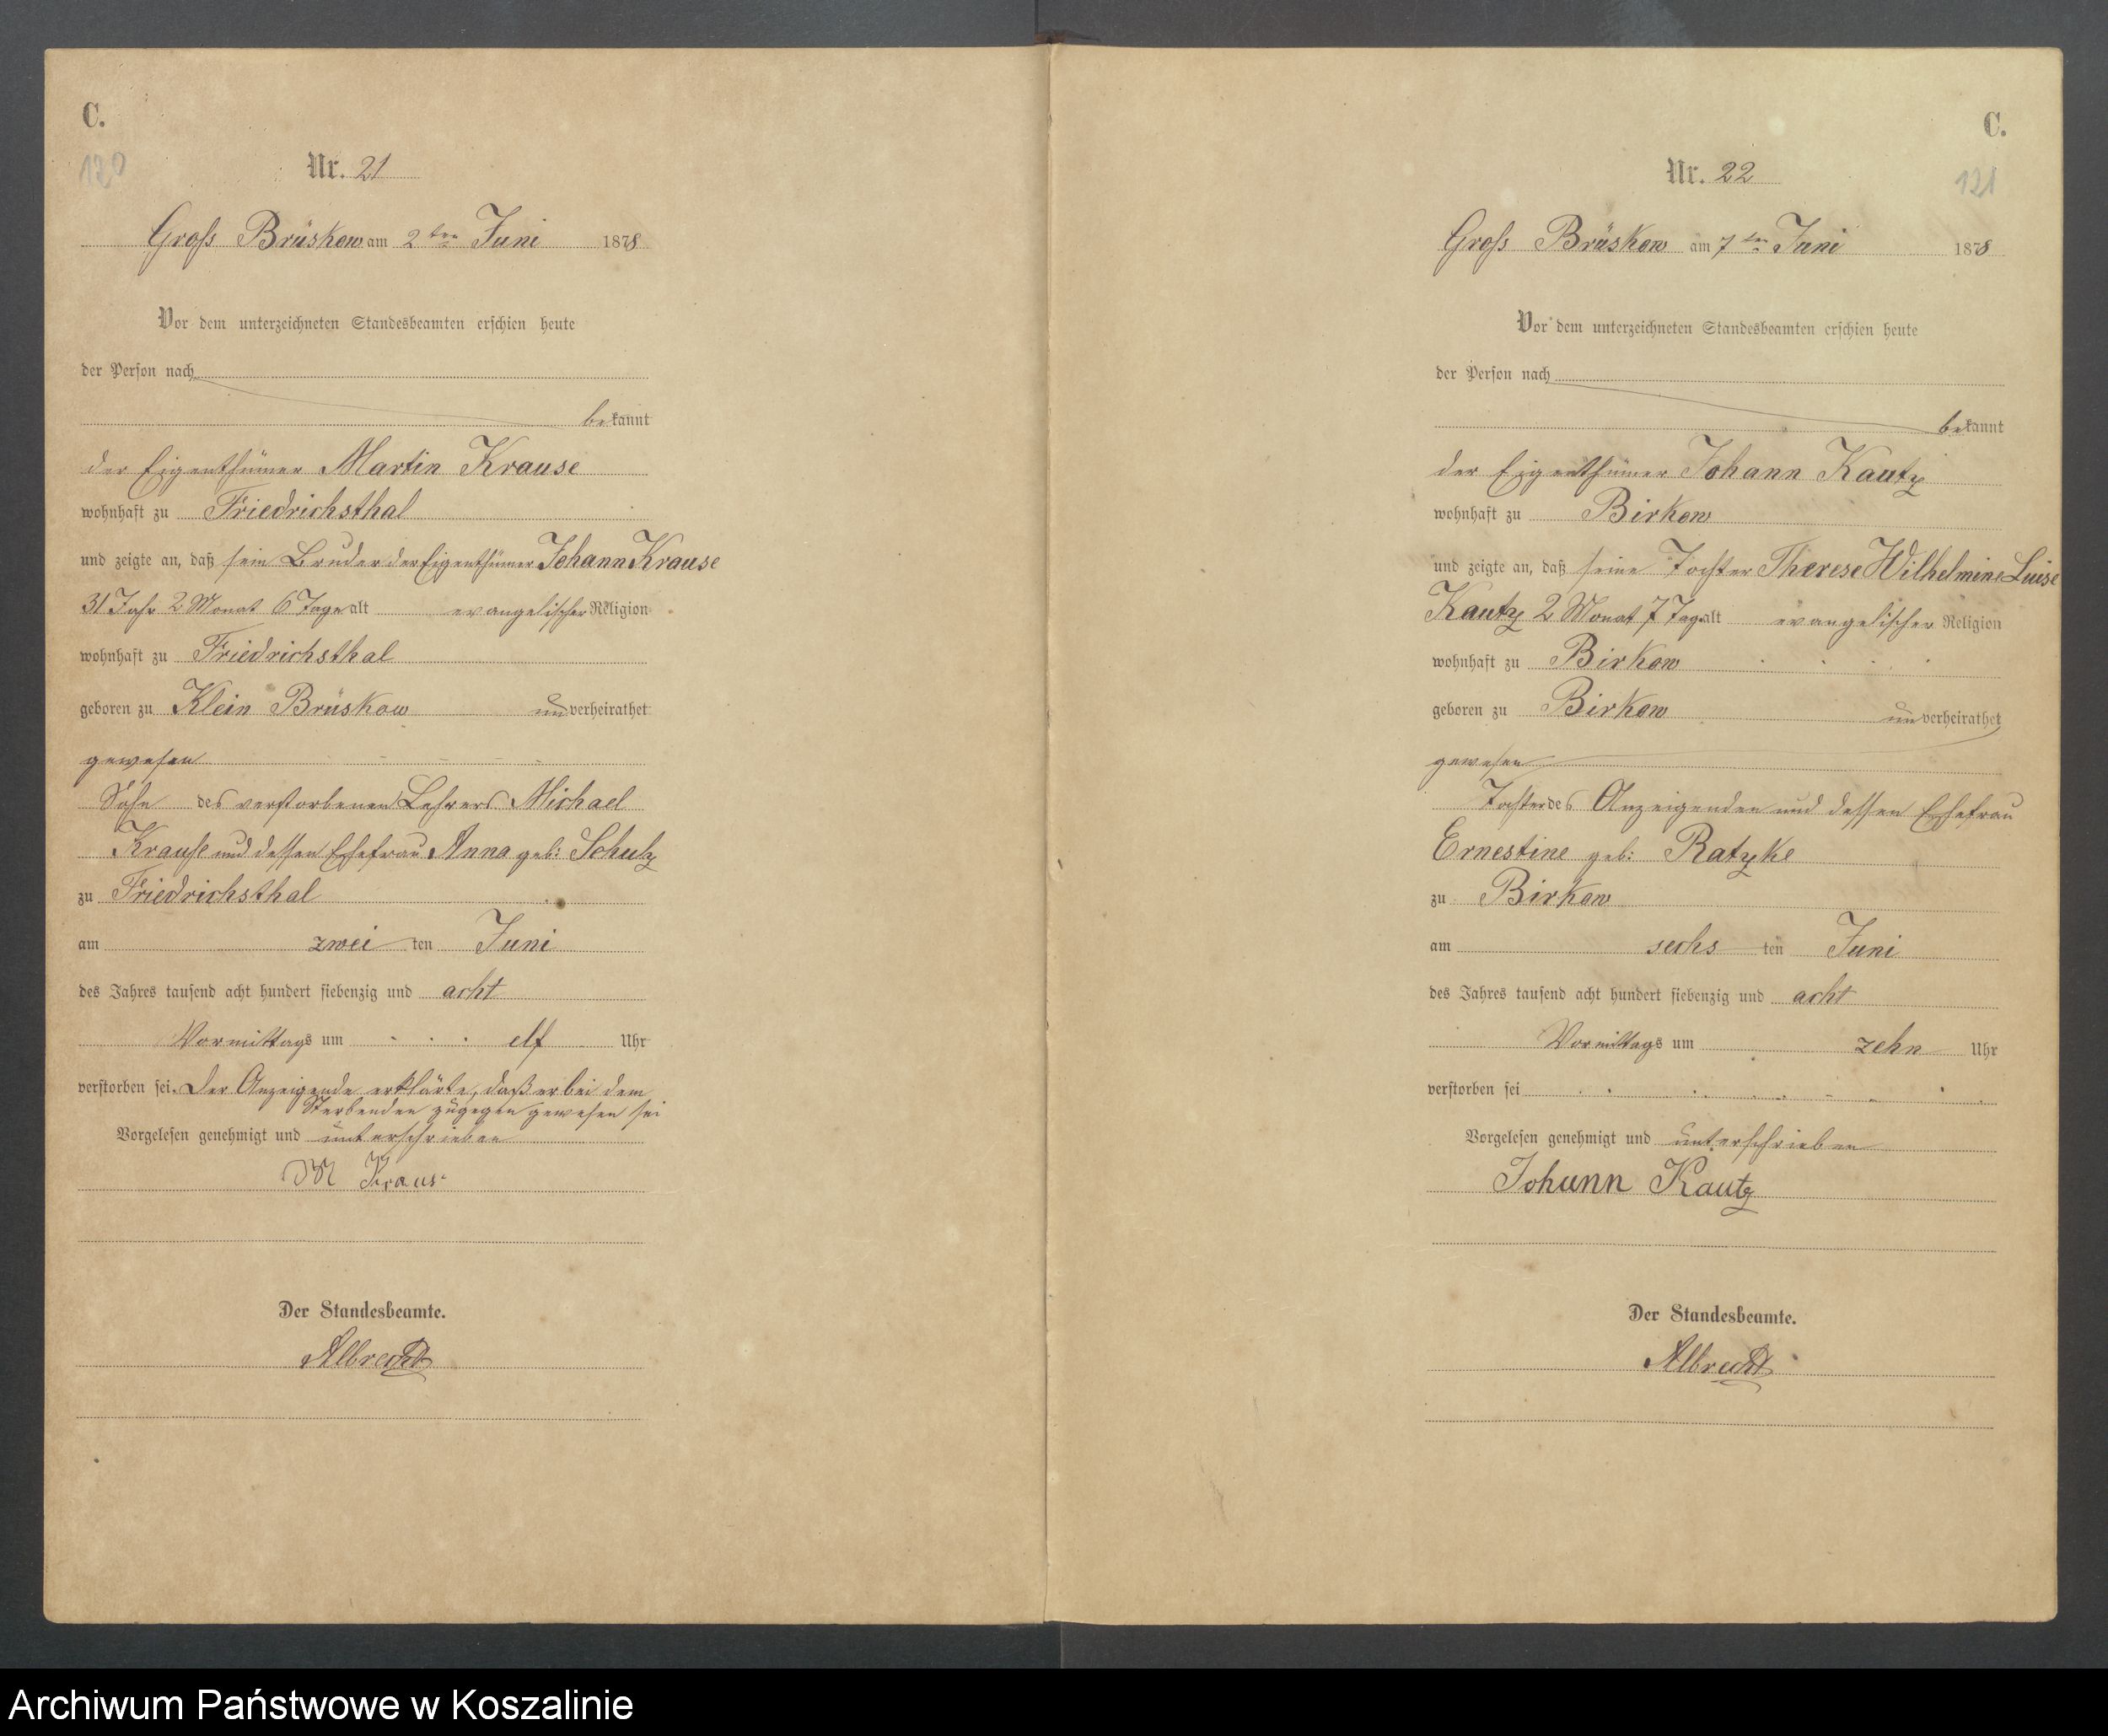 C.
120
Nr. 21
Groß Brüskow am 2ten Juni 1878
Vor dem unterzeichneten Standesbeamten erschien heute
der Person nach
bekannt
der Eigenthümer Martin Krause
wohnhaft zu Friedrichsthal
und zeigte an, daß sein Bruder der Eigenthümer Johann Krause
31 Jahr 2 Monat 6 Tage alt evangelischer Religion
wohnhaft zu Friedrichsthal
geboren zu Klein Brüskow unverheirathet
gewesen
Sohn des verstorbenen Lehrers Michael
Krause und dessen Ehefrau Anna geb: Schulz
zu Friedrichsthal
am zwei ten Juni
des Jahres tausend acht hundert siebenzig und acht
Vormittags um elf Uhr
verstorben sei. Der Anzeigende erklärte, daß er bei dem
Sterbenden zugegen gewesen sei
Vorgelesen genehmigt und unterschrieben
M Kraus
Der Standesbeamte.
Albrecht
C.
121
Nr. 22
Groß Brüskow am 7ten Juni 1878
Vor dem unterzeichneten Standesbeamten erschien heute
der Person nach
bekannt
der Eigenthümer Johann Kautz
wohnhaft zu Birkow
und zeigte an, daß seine Tochter Therese Wilhelmine Luise
Kautz 2 Monat 7 Tag alt evangelischer Religion
wohnhaft zu Birkow
geboren zu Birkow unverheirathet
gewesen
Tochter des Anzeigenden und dessen Ehefrau
Ernestine geb: Ratzke
zu Birkow
am sechs ten Juni
des Jahres tausend acht hundert siebenzig und acht
Vormittags um zehn Uhr
verstorben sei
Vorgelesen genehmigt und unterschrieben
Johann Kautz
Der Standesbeamte.
Albrecht
Archiwum Państwowe w Koszalinie